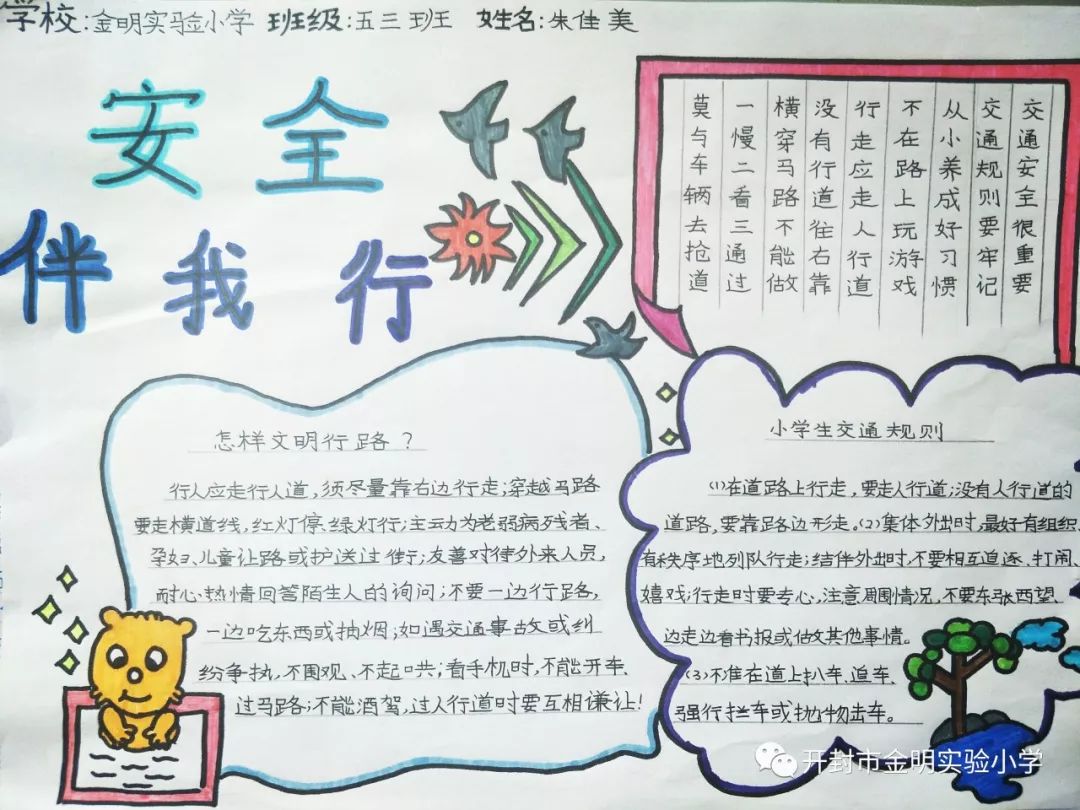 学校:金明实验小学 班级:五三班 姓名:朱佳美
安全
伴我行
交通安全很重要
交通规则要牢记
从小养成好习惯
不在路上玩游戏
行走应走人行道
没有行道往右靠
横穿马路不能做
一慢二看三通过
莫与车辆去抢道
怎样文明行路?
行人应走行人道,须尽量靠右边行走;穿越马路
要走横道线,红灯停、绿灯行;主动为老弱病残者、
孕妇、儿童让路或护送过街;友善对待外来人员,
耐心热情回答陌生人的询问;不要一边行路,
一边吃东西或抽烟;如遇交通事故或纠
纷争执,不围观、不起哄;看手机时,不能开车、
过马路;不能酒驾,过人行道时要互相谦让!
小学生交通规则
(1)在道路上行走,要走人行道;没有人行道的
道路,要靠路边形走。(2)集体外出时,最好有组织、
有秩序地列队行走;结伴外出时,不要相互追逐、打闹、
嬉戏;行走时要专心,注意周围情况,不要东张西望、
边走边看书报或做其他事情。
(3)不准在道上扒车、追车、
强行拦车或抛物击车。
开封市金明实验小学